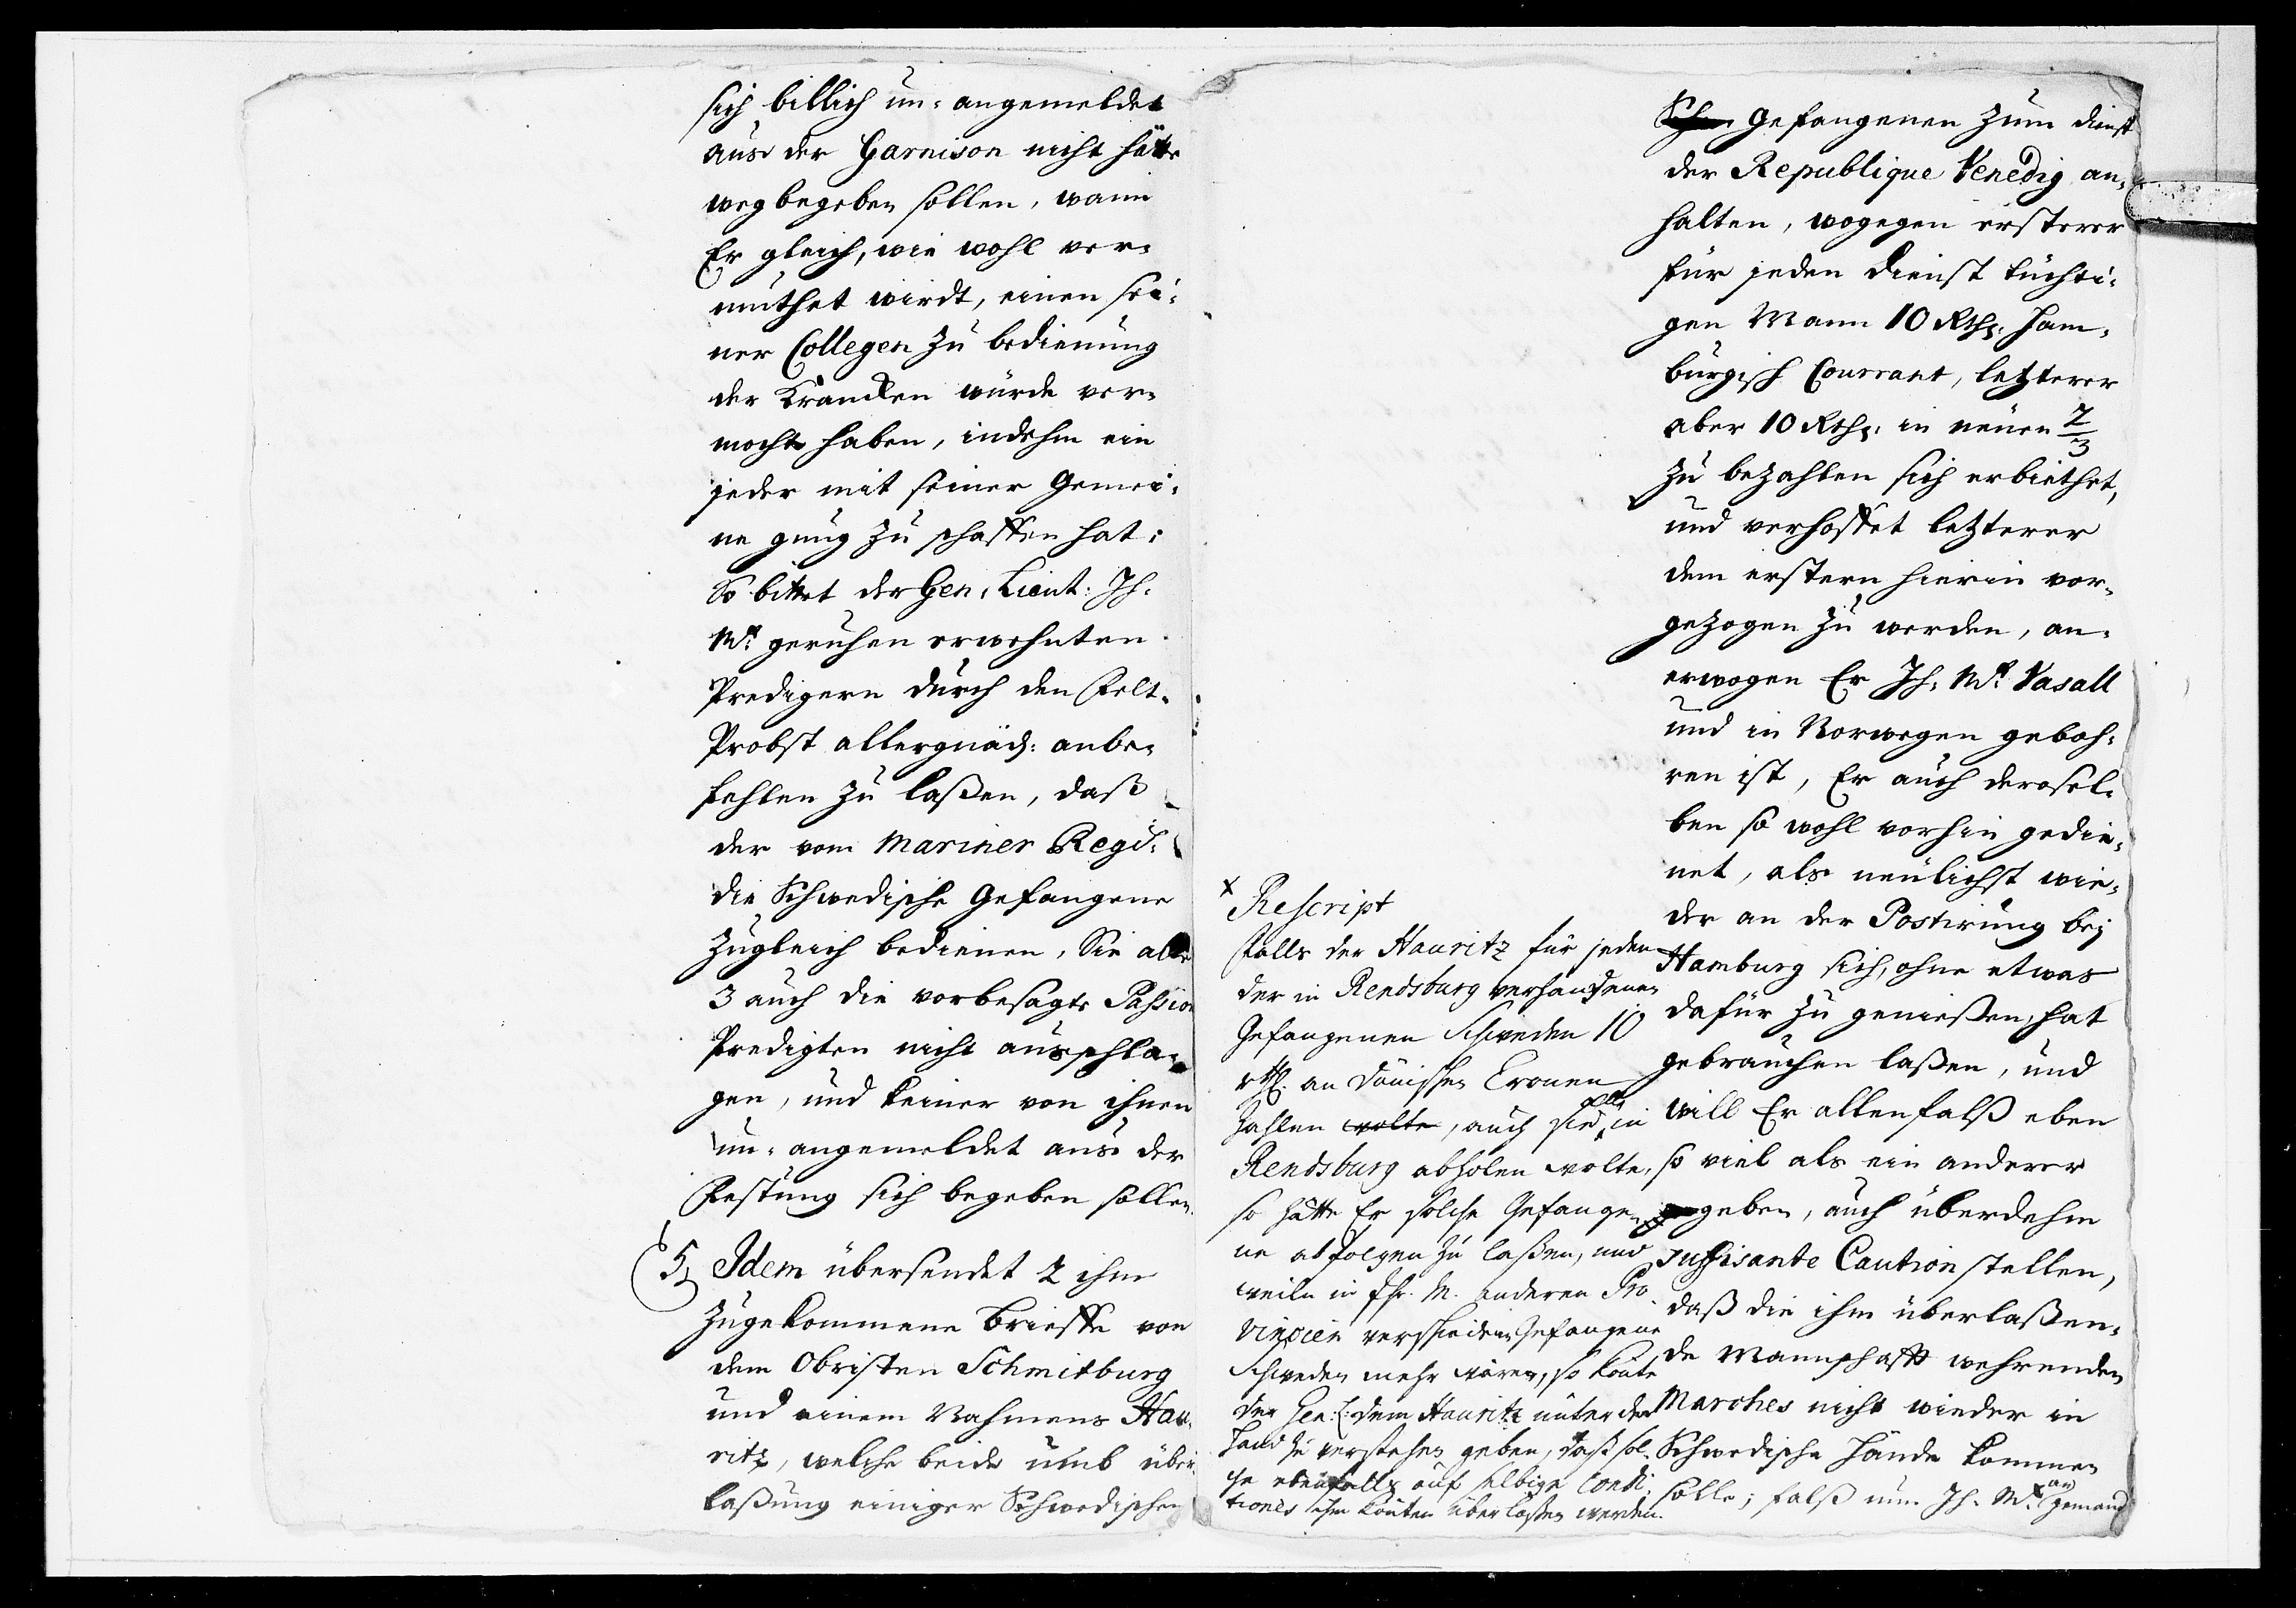 sich billich un-angemeldet
aus der Garnison nicht hätte
weg begeben sollen, wann
Er gleich, wie wohl ver-
muthet wirdt, einen sei-
ner Collegen zu bedienung
der Krancken würde ver-
mocht haben, indehm ein
jeder mit seiner Gemei-
ne gnug zu schaffen hat:
So bittet der Gen. Lieut: Ih.
Mt. geruhen erwehnten
Predigern durch den Felt-
Probst allergnäd: anbe-
fehlen zu laßen, daß
der vom Mariner Regt.
die Schwedische Gefangene
zugleich bedienen, Sie alle
3 auch die vorbesagte Passion
Predigten nicht ausschla-
gen, und keiner von ihnen
un-angemeldet aus der
Festung sich begeben sollen.
5, Idem übersendet 2 ihm
zugekommene Brieffe von
dem Obristen Schmitburg
und einem Nahmens Hau-
ritz, welche beide umb über-
laßung einiger Schwedischen
x
Rescript
falls der Hauritz für jeden
der in Rendsburg verhandenen
Gefangenen Schweden 10
rthl. an dänischen Cronen
zahlen wolte, auch sie in
Rendsburg abholen wolte,
so hätte Er solche Gefange-
ne abfolgen zu laßen, und
weiln in Ihr. M. anderen Pro-
vincien verschiedene Gefangene
Schweden mehr wären, so könte
der Gen: L: dem Hauritz unter der
Hand zu verstehen geben, daß sol-
che ebenfalls auf selbige Condi-
tiones ihm könten überlaßen werden.
Gefangenen zum dienst
der Republique Venedig an-
halten, wogegen ersterer
für jeden Dienst tüchti-
gen Mann 10 Rthr. Ham-
burgisch Courrant, letzterer
aber 10 Rthr. in neuen 2/3
zu bezahlen sich erbiethet,
und verhoffet letzterer
dem erstern hierin vor-
gezogen zu werden, an-
erwogen Er Ih. Mt. Vasall
und in Norwegen geboh-
ren ist, Er auch derosel-
ben so wohl vorhin gedie-
net, als neulichst wie-
der an der Postirung bej
Hamburg sich, ohne etwas
dafür zu genießen, hat
gebrauchen laßen, und
will Er allenfalß eben
so viel als ein anderer
geben, auch überdehm
suffisante Caution stellen,
daß die ihm überlaßen-
de Mannschafft wehrenden
Marches nicht wieder in
Schwedische Hände kommen
solle; falß nun Ih. Mt. x an jemand